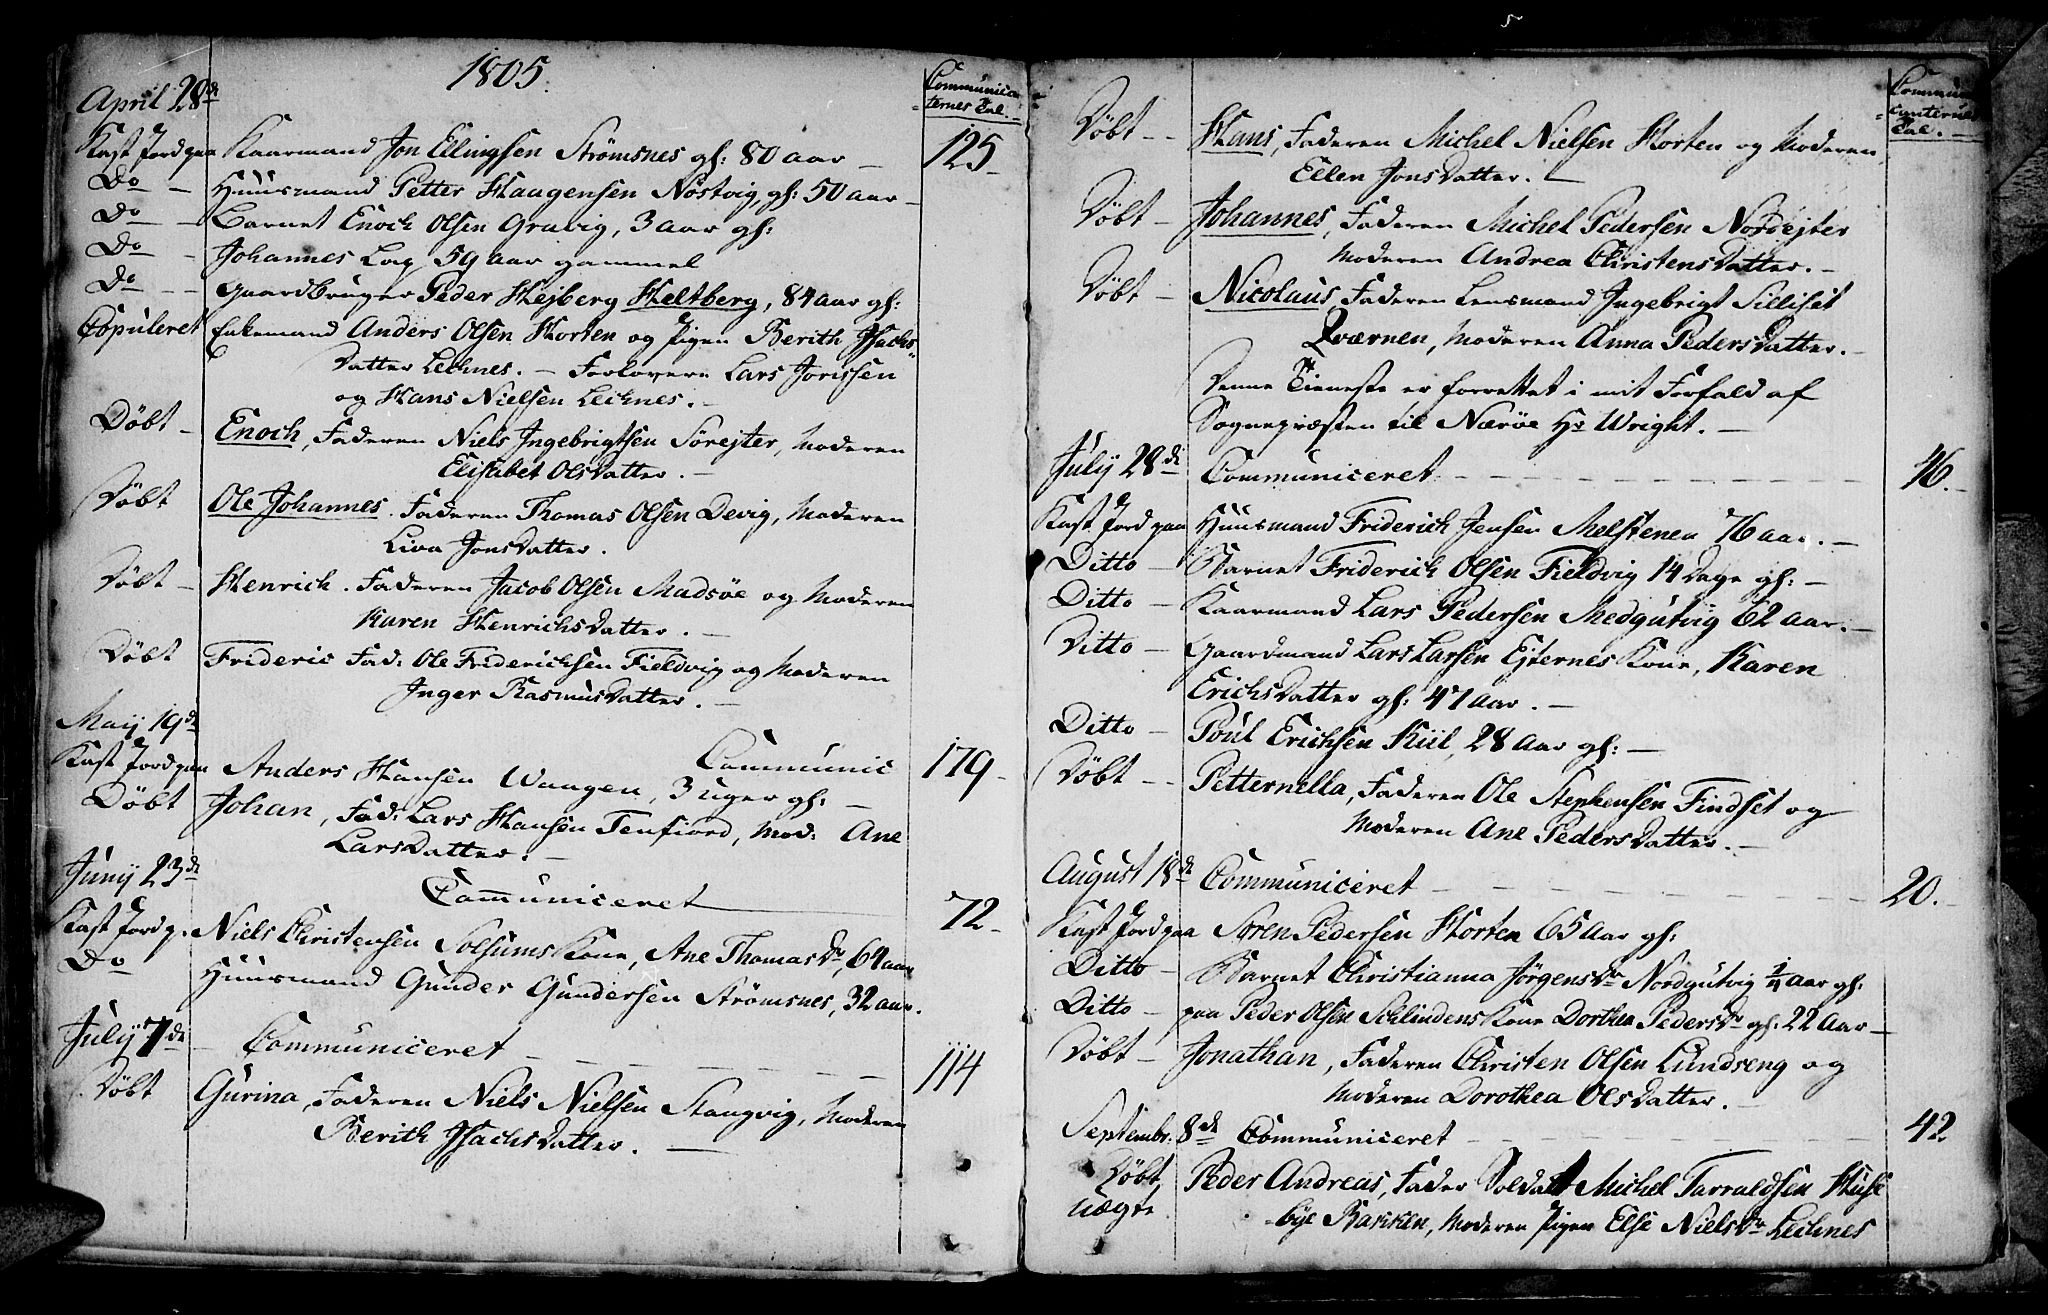 1805.
Communican-
ternes Tal.
April 28de
Kast Jord paa Kaarmand Jon Ellingsen Strömsnes gl: 80 aar — 125
Do — Huusmand Petter Haagensen Nöstvig, gl: 50 aar —
Do — Barnet Enoch Olsen Gravig, 3 aar gl:
Do — Johannes Lap 59 aar gammel
Do — Gaardbruger Peder Hejberg Heltberg, 84 aar gl:
Copuleret Enkemand Anders Olsen Horten og Pigen Berith Isachs-
Datter Lechnes. — Forlovere Lars Jorissen
og Hans Nielsen Lechnes. —
Döbt — Enoch, Faderen Niels Ingebrigtsen Sörejter, Moderen
Elisabet Olsdatter. —
Döbt Ole Johannes. Faderen Thomas Olsen Devig, Moderen
Liva Jonsdatter.
Döbt — Henrich. Faderen Jacob Olsen Madsöe og Moderen
Karen Henrichsdatter. —
Döbt Frideric Fad: Ole Friderichsen Fieldvig og Moderen
Inger Rasmusdatter. —
Maij 19de Communic 179 —
Kast Jord paa Anders Hansen Waagen, 3 uger gl: —
Döbt Johan, Fad: Lars Hansen Tenfiord, Mod: Ane
Larsdatter. —
Junij 23de Communiceret 72 —
Kast Jord p. Niels Christensen Solsums Kone, Ane Thomasdr, 64 aar
Do Huusmand Gunder Gundersen Strömsnes, 32 aar.
July 7de Communiceret — 114
Döbt Gurina, Faderen Niels Nielsen Stangvig, Moderen
Berith Isachsdatter. —
Communi-
canternes
Tal. —
Döbt — Hans, Faderen Michel Nielsen Horten og Moderen
Ellen Jonsdatter. —
Döbt — Johannes, Faderen Michel Pedersen Nordejter
Moderen Andrea Christensdatter. —
Döbt — Nicolaus, Faderen Lensmand Ingebrigt Silliset
Qværnen, Moderen Anna Pedersdatter. —
Denne Tieneste er forrettet i mit Forfald af
Sognepræsten til Næröe Hr Wright. —
July 28de Communiceret — 46. —
Kast Jord paa Huusmand Friderich Jensen Melstenen 76 aar. —
Ditto — Barnet Friderich Olsen Fieldvig 14 Dage gl: —
Ditto — Kaarmand Lars Pedersen Medgutvig 62 aar. —
Ditto — Gaardmand Lars Larsen Ejternes Kone, Karen
Erichsdatter gl: 47 aar. —
Ditto — Poul Erichsen Kiil, 28 aar gl: —
Döbt — Petternella, Faderen Ole Stephensen Findset og
Moderen Ane Pedersdatter. —
August 18de Communiceret — 20. —
Kast Jord paa Sören Pedersen Horten 65 aar gl:
Ditto — Barnet Christianna Jörgensdr Nordgutvig 1/4 aar gl:
Ditto — paa Peder Olsen Schlindens Kone Dorthea Pedersdr gl: 22 aar —
Döbt — Jonathan, Faderen Christen Olsen Lundseng og
Moderen Dorothea Olsdatter. —
Septembr: 8de Communiceret — 42
Döbt Peder Andreas, Fader Soldat Michel Tarraldsen Huse-
uægte bye Bakken, Moderen Pigen Else Nielsdr Lechnes